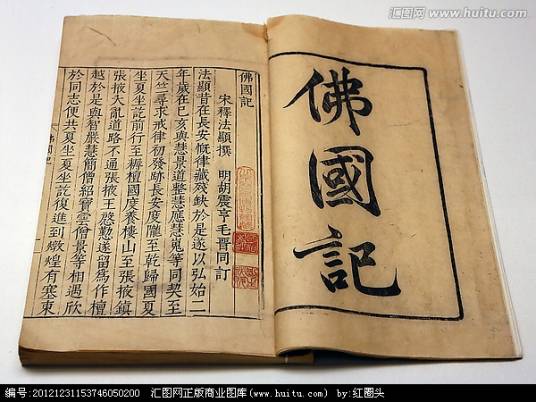 汇图网
www.huitu.com
佛國記
佛國記
宋釋法顯撰 明胡震亨毛晉同訂
法顯昔在長安慨律藏殘缺於是遂以弘始二
年歲在己亥與慧景道整慧應慧嵬等同契至
天竺尋求戒律初發跡長安度隴至乾歸國夏
坐夏坐訖前行至耨檀國度養樓山至張掖鎮
張掖大亂道路不通張掖王慇懃遂留為作檀
越於是與智嚴慧簡僧紹寶雲僧景等相遇欣
於同志便共夏坐夏坐訖復進到燉煌有塞東
佛國記
编号:20121231153746050200 汇图网正版商业图库(www.huitu.com) by:红圈头